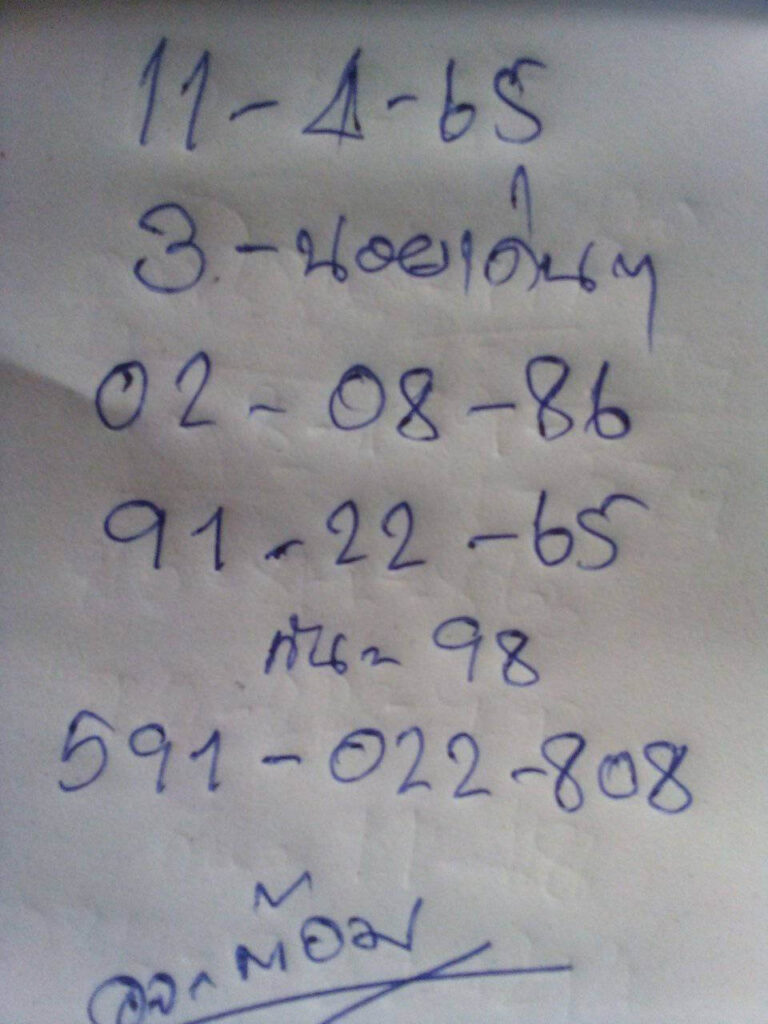 11-1-65
3-นอยเด่นๆ
02-08-86
91-22-65
กัน-98
591-022-808